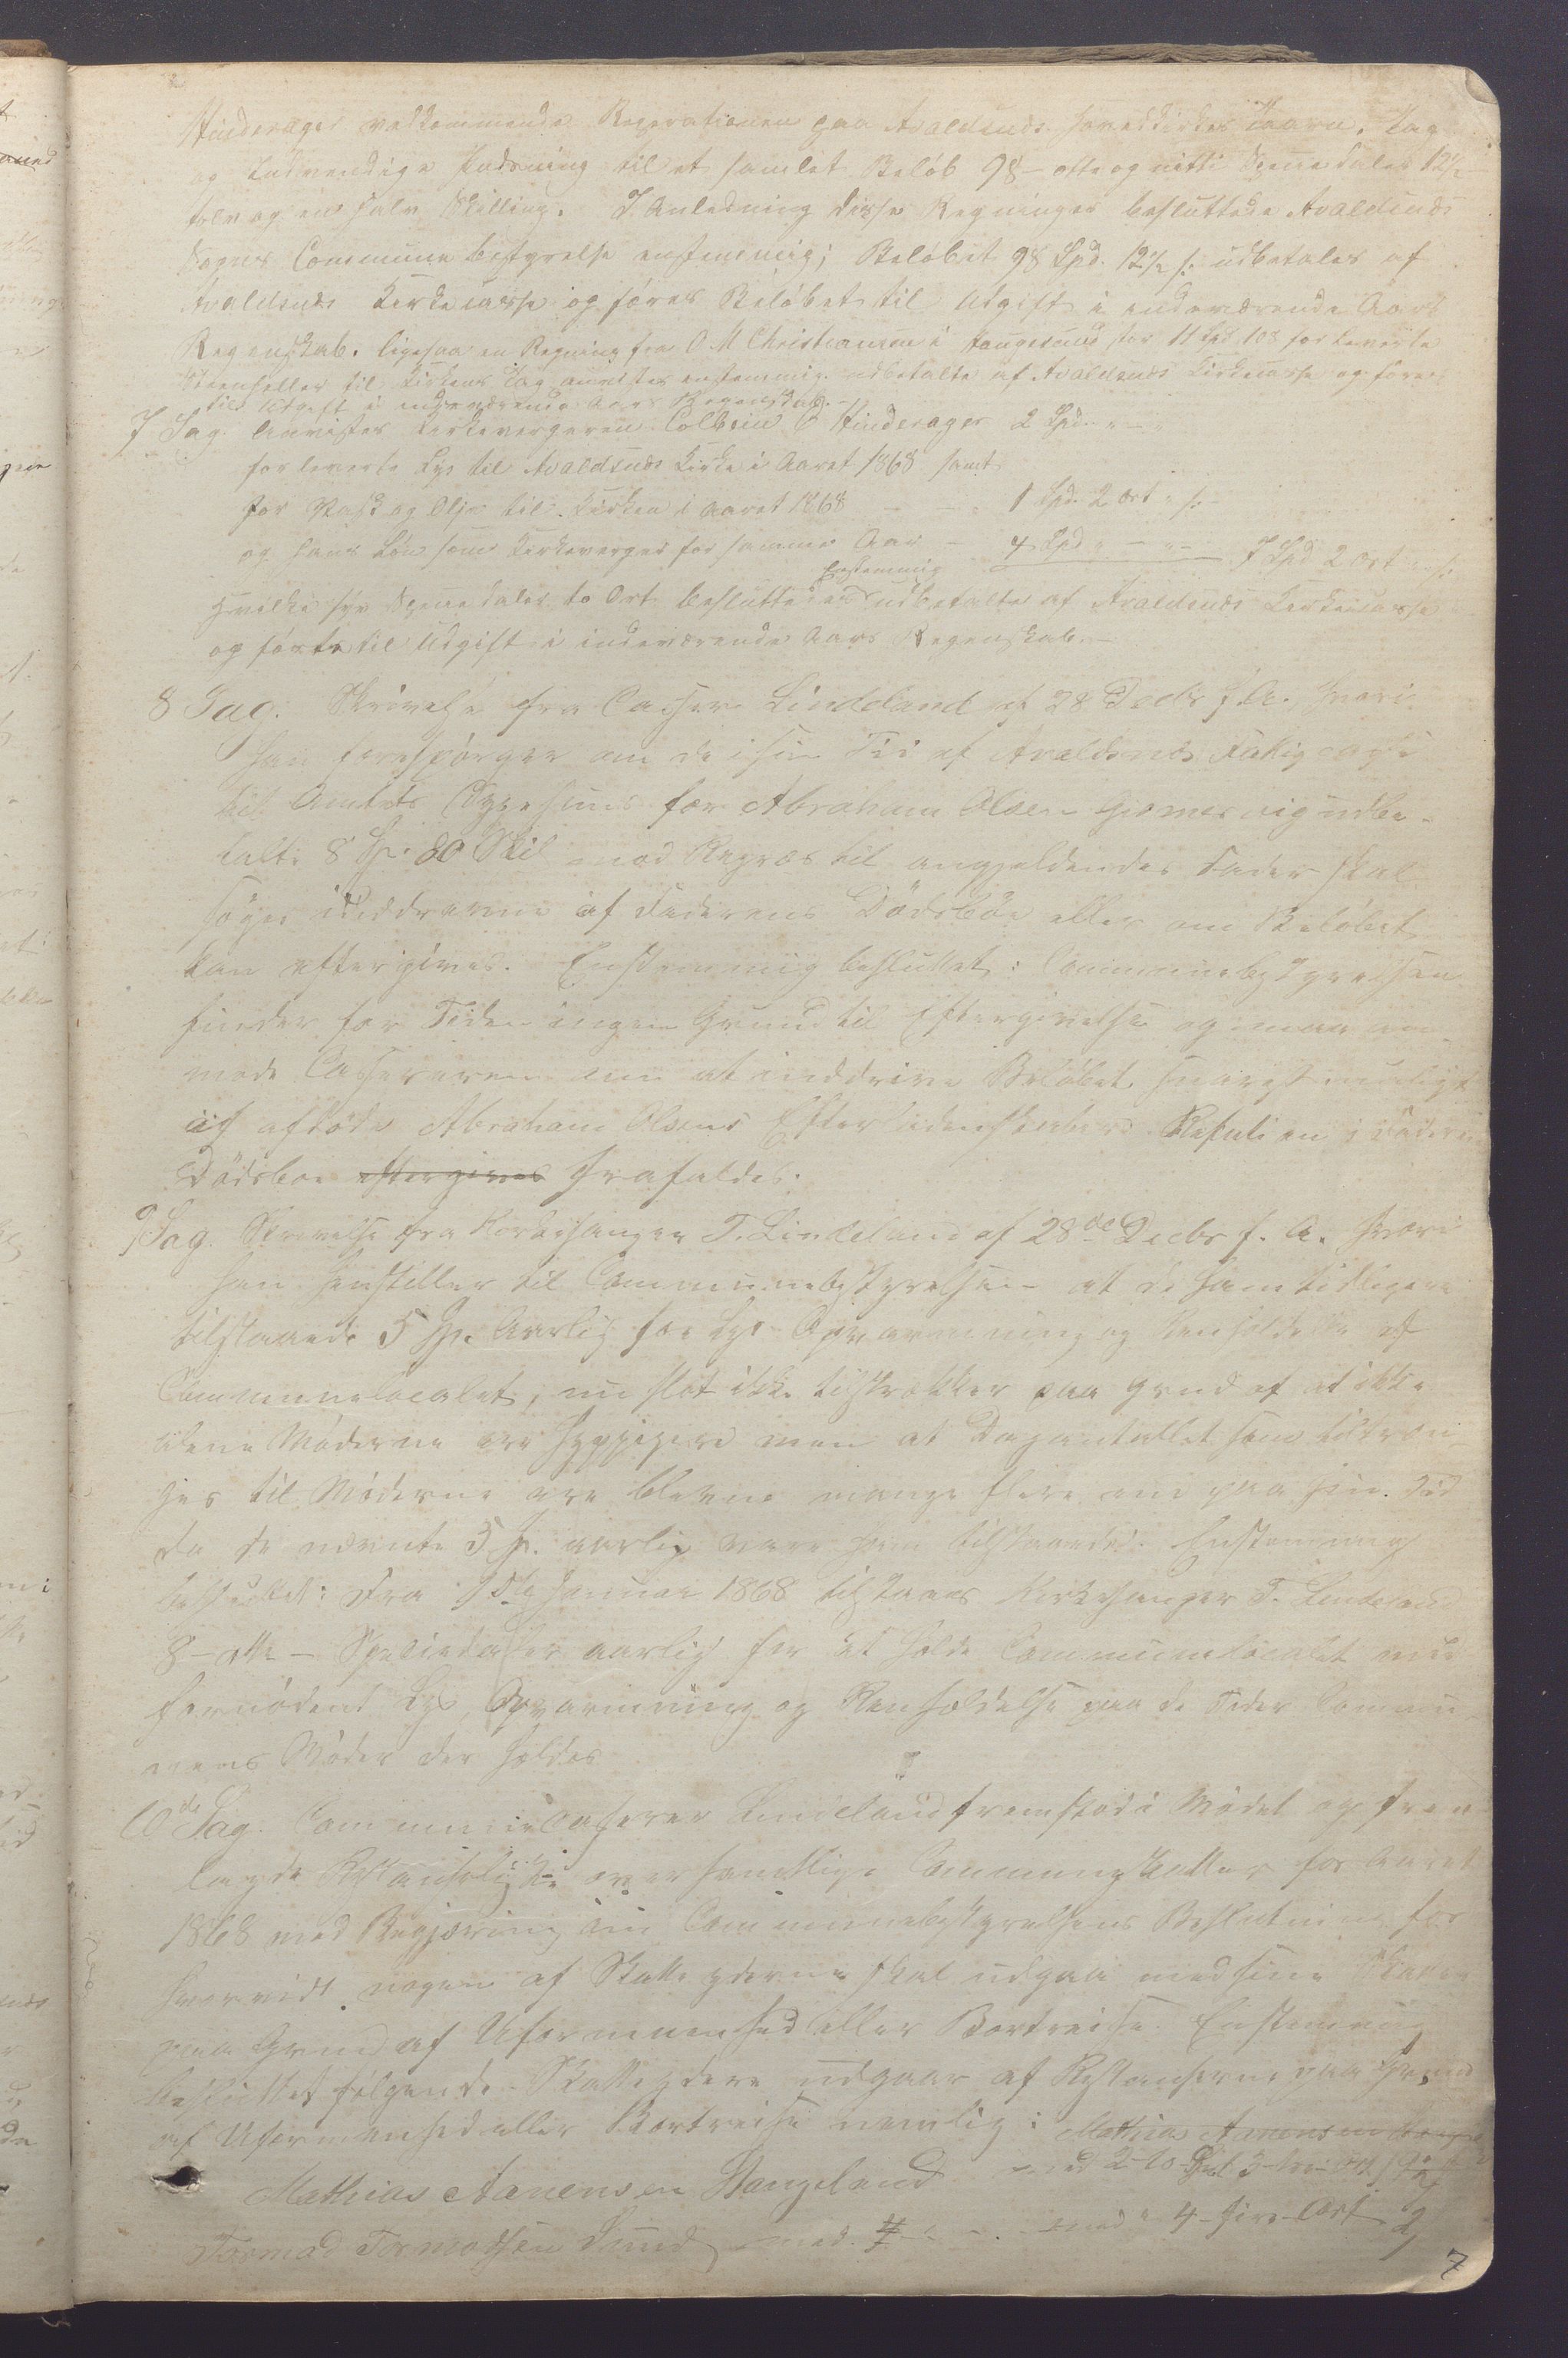 Hinderager vedkommende Reperationen paa Avaldsnæs Hovedkirkes Taarn, Tag
og Indvendige Pudsning til et samlet Beløb 98 – otte og nitti Speciedaler 12½
tolv og en halv Skilling. I Anledning disse Regninger besluttede Avaldsnæs
Sogns Communebestyrelse enstemmig; Beløbet 98 Spd. 12½ s. udbetales af
Avaldsnæs Kirkecasse og føres Beløbet til Udgift i indeværende Aars
Regnskab. ligesaa en Regning fra O. M. Christiansen i Haugesund stor 11 Spd. 108 for leverte
Steenheller til Kirkens Tag anvistes enstemmig udbetalte af Avaldsnæs Kirkecasse og føres
til Udgift i indeværende Aars Regnskab.
7 Sag. Anvistes Kirkevergeren Colbein O Hinderager 2 Spd. " – "
for leverte Lys til Avaldsnæs Kirke i Aaret 1868 samt
for Vask og Olje til Kirken i Aaret 1868 – – 1 Spd. 2 ort " s.
og hans Løn som Kirkeverger for samme Aar – 4 Spd " – " – 7 Spd 2 ort " s.
Enstemmig
hvilke syv Speciedaler to Ort besluttedes udbetalte af Avaldsnæs Kirkecasse
og førte til Udgift i indeværende Aars Regnskab. –
8 Sag. Skrivelse fra Casserer Lindeland af 28 Decbr f. A., hvori
han forespørger om de i sin Tid af Avaldsnæs Fattigcasse
til Amtets Sygehuus for Abraham Olsen udbe-
talte 8 Sp. 80 Skil mod Regres til angjeldendes Fader skal
søges inddrevne af Faderens Dødsboe eller om Beløbet
kan eftergives. Enstemmig besluttet: Communebestyrelsen
finder for Tiden ingen Grund til Eftergivelse og maa an-
mode Cassereren om at inddrive Beløbet snarest muligt
af afdøde Abraham Olsens Efterladenskaber. i Faderens
Dødsboe eftergives frafaldes.
9 Sag. Skrivelse fra Kirkesanger T. Lindeland af 28de Decbr f. A. hvori
han henstiller til Communebestyrelsen at de ham tidligere
tilstaaede 5 Sp. Aarlig for Lys Opvarmning og Renholdelse af
Communelocalet, nu slet ikke tilstrækker paa Grund af at ikke
alene Møderne ere hyppigere men at Dagantallet som tiltræn-
ges til Møderne ere blevne mange flere end paa sin Tid
da de nævnte 5 Sp. aarlig vare ham tilstaaede. Enstemmig
besluttet: Fra 1ste Januar 1868 tilstaaes Kirkesanger T. Lindeland
8 – otte – Speciedaler aarlig for at holde Communelocalet med
fornødent Lys, Opvarmning og Renholdelse paa de Tider Commu-
nens Møder der holdes
10de Sag. Communecasserer Lindeland fremstod i Mødet og frem-
lagde Restanceliste over samtlige Communeskatter for Aaret
1868 med Begjæring om Communebestyrelsens Beslutning for
hvorvidt nogen af Skatteyderne skal udgaa med sine Skatter
paa Grund af Uformuenhed eller Bortreise. Enstemmig
besluttet følgende Skatteydere udgaar af Restancerne paa Grund
af Uformuenhed eller Bortreise nemlig: Mathias Aanensen
Mathias Aanensen Stangeland med 2-to-Spd 3-tre-Ort
Tormod Tormodsen Sund med 4-fire-Ort 2
7